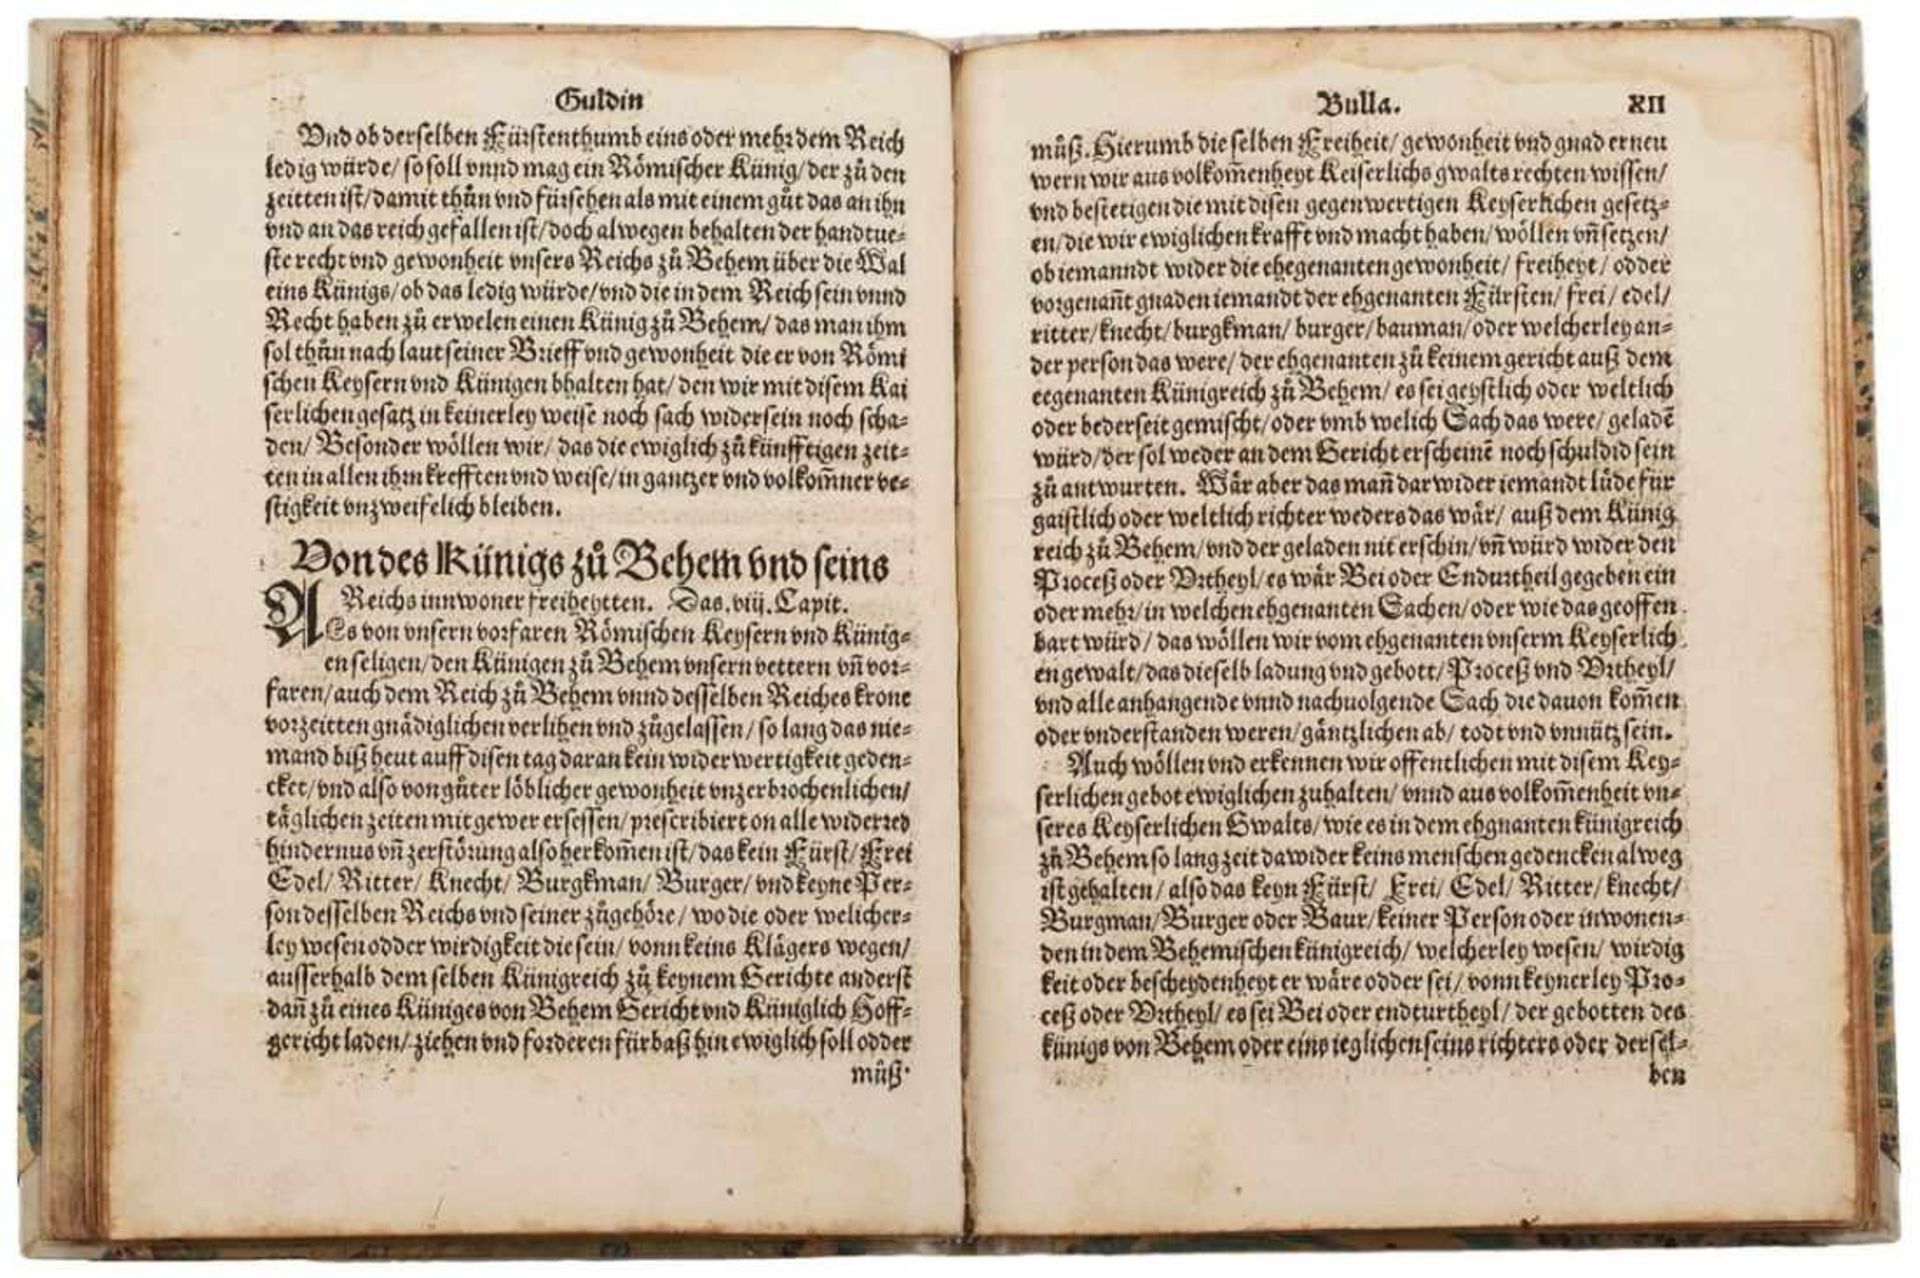 Guldin
Vnd ob derselben Fürstenthumb eins oder mehr dem Reich
ledig würde/ so soll vnnd mag ein Römischer Künig/ der zů den
zeitten ist/ damit thůn vnd fürsehen als mit einem gůt das an ihn
vnd an das reich gefallen ist/ doch alwegen behalten der handtue-
ste recht vnd gewonheit vnsers Reichs zů Behem über die Wal
eins Künigs/ ob das ledig würde/ vnd die in dem Reich sein vnnd
Recht haben zů erwelen einen Künig zů Behem/ das man ihm
sol thůn nach laut seiner Brieff vnd gewonheit die er von Römi
schen Keysern vnd Künigen bhalten hat/ den wir mit disem Kai
serlichen gesatz in keinerley weise noch sach wider sein noch scha-
den/ Besonder wöllen wir/ das die ewiglich zů künfftigen zeit-
ten in allen ihrn krefften vnd weise/ in gantzer vnd volkom̃ner ve-
stigkeit vnzweifelich bleiben.
Von des Künigs zů Behem vnd seins
Reichs innwoner freiheytten. Das. viij. Capit.
Als von vnsern vorfaren Römischen Keysern vnd Künig-
en seligen/ den Künigen zů Behem vnsern vettern vñ vor-
faren/ auch dem Reich zů Behem vnnd desselben Reiches krone
vorzeitten gnädiglichen verlihen vnd zůgelassen/ so lang das nie-
mand biß heut auff disen tag daran kein widerwertigkeit geden-
cket/ vnd also von gůter löblicher gewonheit vnzerbrochenlichen/
täglichen zeiten mit gewer ersessen/ prescribiert on alle widerred
hindernus vñ zerstörung also herkom̃en ist/ das kein Fürst/ Frei
Edel/ Ritter/ Knecht/ Burgkman/ Burger/ vnd keyne Per-
son desselben Reichs vnd seiner zůgehöre/ wo die oder welicher-
ley wesen odder wirdigkeit die sein/ vonn keins Klägers wegen/
ausserhalb dem selben Künigreich zů keynem Gerichte anderst
dañ zů eines Küniges von Behem Gericht vnd Küniglich Hoff-
gericht laden/ ziehen vnd forderen fürbaß hin ewiglich soll odder
můß.
Bulla. XII
můß. Hierumb die selben Freiheit/ gewonheit vnd gnad erneu
wern wir aus volkom̃enheyt Keiserlichs gwalts rechten wissen/
vnd bestetigen die mit disen gegenwertigen Keyserlichen gesetz-
en/ die wir ewiglichen krafft vnd macht haben/ wöllen vñ setzen/
ob iemanndt wider die ehegenanten gewonheit/ freiheyt/ odder
vorgenañt gnaden iemandt der ehgenanten Fürsten/ frei/ edel/
ritter/ knecht/ burgkman/ burger/ bauman/ oder welcherley an-
der person das were/ der ehgenanten zů keinem gericht auß dem
eegenanten Künigreich zů Behem/ es sei geystlich oder weltlich
oder bederseit gemischt/ oder vmb welich Sach das were/ geladẽ
würd/ der sol weder an dem Gericht erscheinẽ noch schuldid sein
zů antwurten. Wär aber das mañ darwider iemandt lüde für
gaistlich oder weltlich richter weders das wär/ auß dem Künig
reich zů Behem/ vnd der geladen nit erschin/ vñ würd wider den
Proceß oder Vrtheyl/ es wär Bei oder Endurtheil gegeben ein
oder mehr/ in welchen ehgenanten Sachen/ oder wie das geoffen
bart würd/ das wöllen wir vom ehgenanten vnserm Keyserlich
en gewalt/ das dieselb ladung vnd gebott/ Proceß vnd Vrtheyl/
vnd alle anhangende vnnd nachuolgende Sach die dauon kom̃en
oder vnderstanden weren/ gäntzlichen ab/ todt vnd vnnütz sein.
Auch wöllen vnd erkennen wir offentlichen mit disem Key-
serlichen gebot ewiglichen zuhalten/ vnnd aus volkom̃enheit vn-
seres Keyserlichen Gwalts/ wie es in dem ehgnanten künigreich
zů Behem so lang zeit dawider keins menschen gedencken alweg
ist gehalten/ also das keyn Fürst/ Frei/ Edel/ Ritter/ knecht/
Burgman/ Burger oder Baur/ keiner Person oder inwonen-
den in dem Behemischen künigreich/ welcherley wesen/ wirdig
keit oder bescheydenheyt er wäre odder sei/ vonn keynerley Pro-
ceß oder Vrtheyl/ es sei Bei oder endturtheyl/ der gebotten des
künigs von Behem oder eins ieglichen seins richters oder dersel-
ben